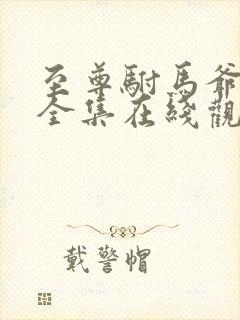 至尊駙馬爺
全集在綫觀
戴警帽